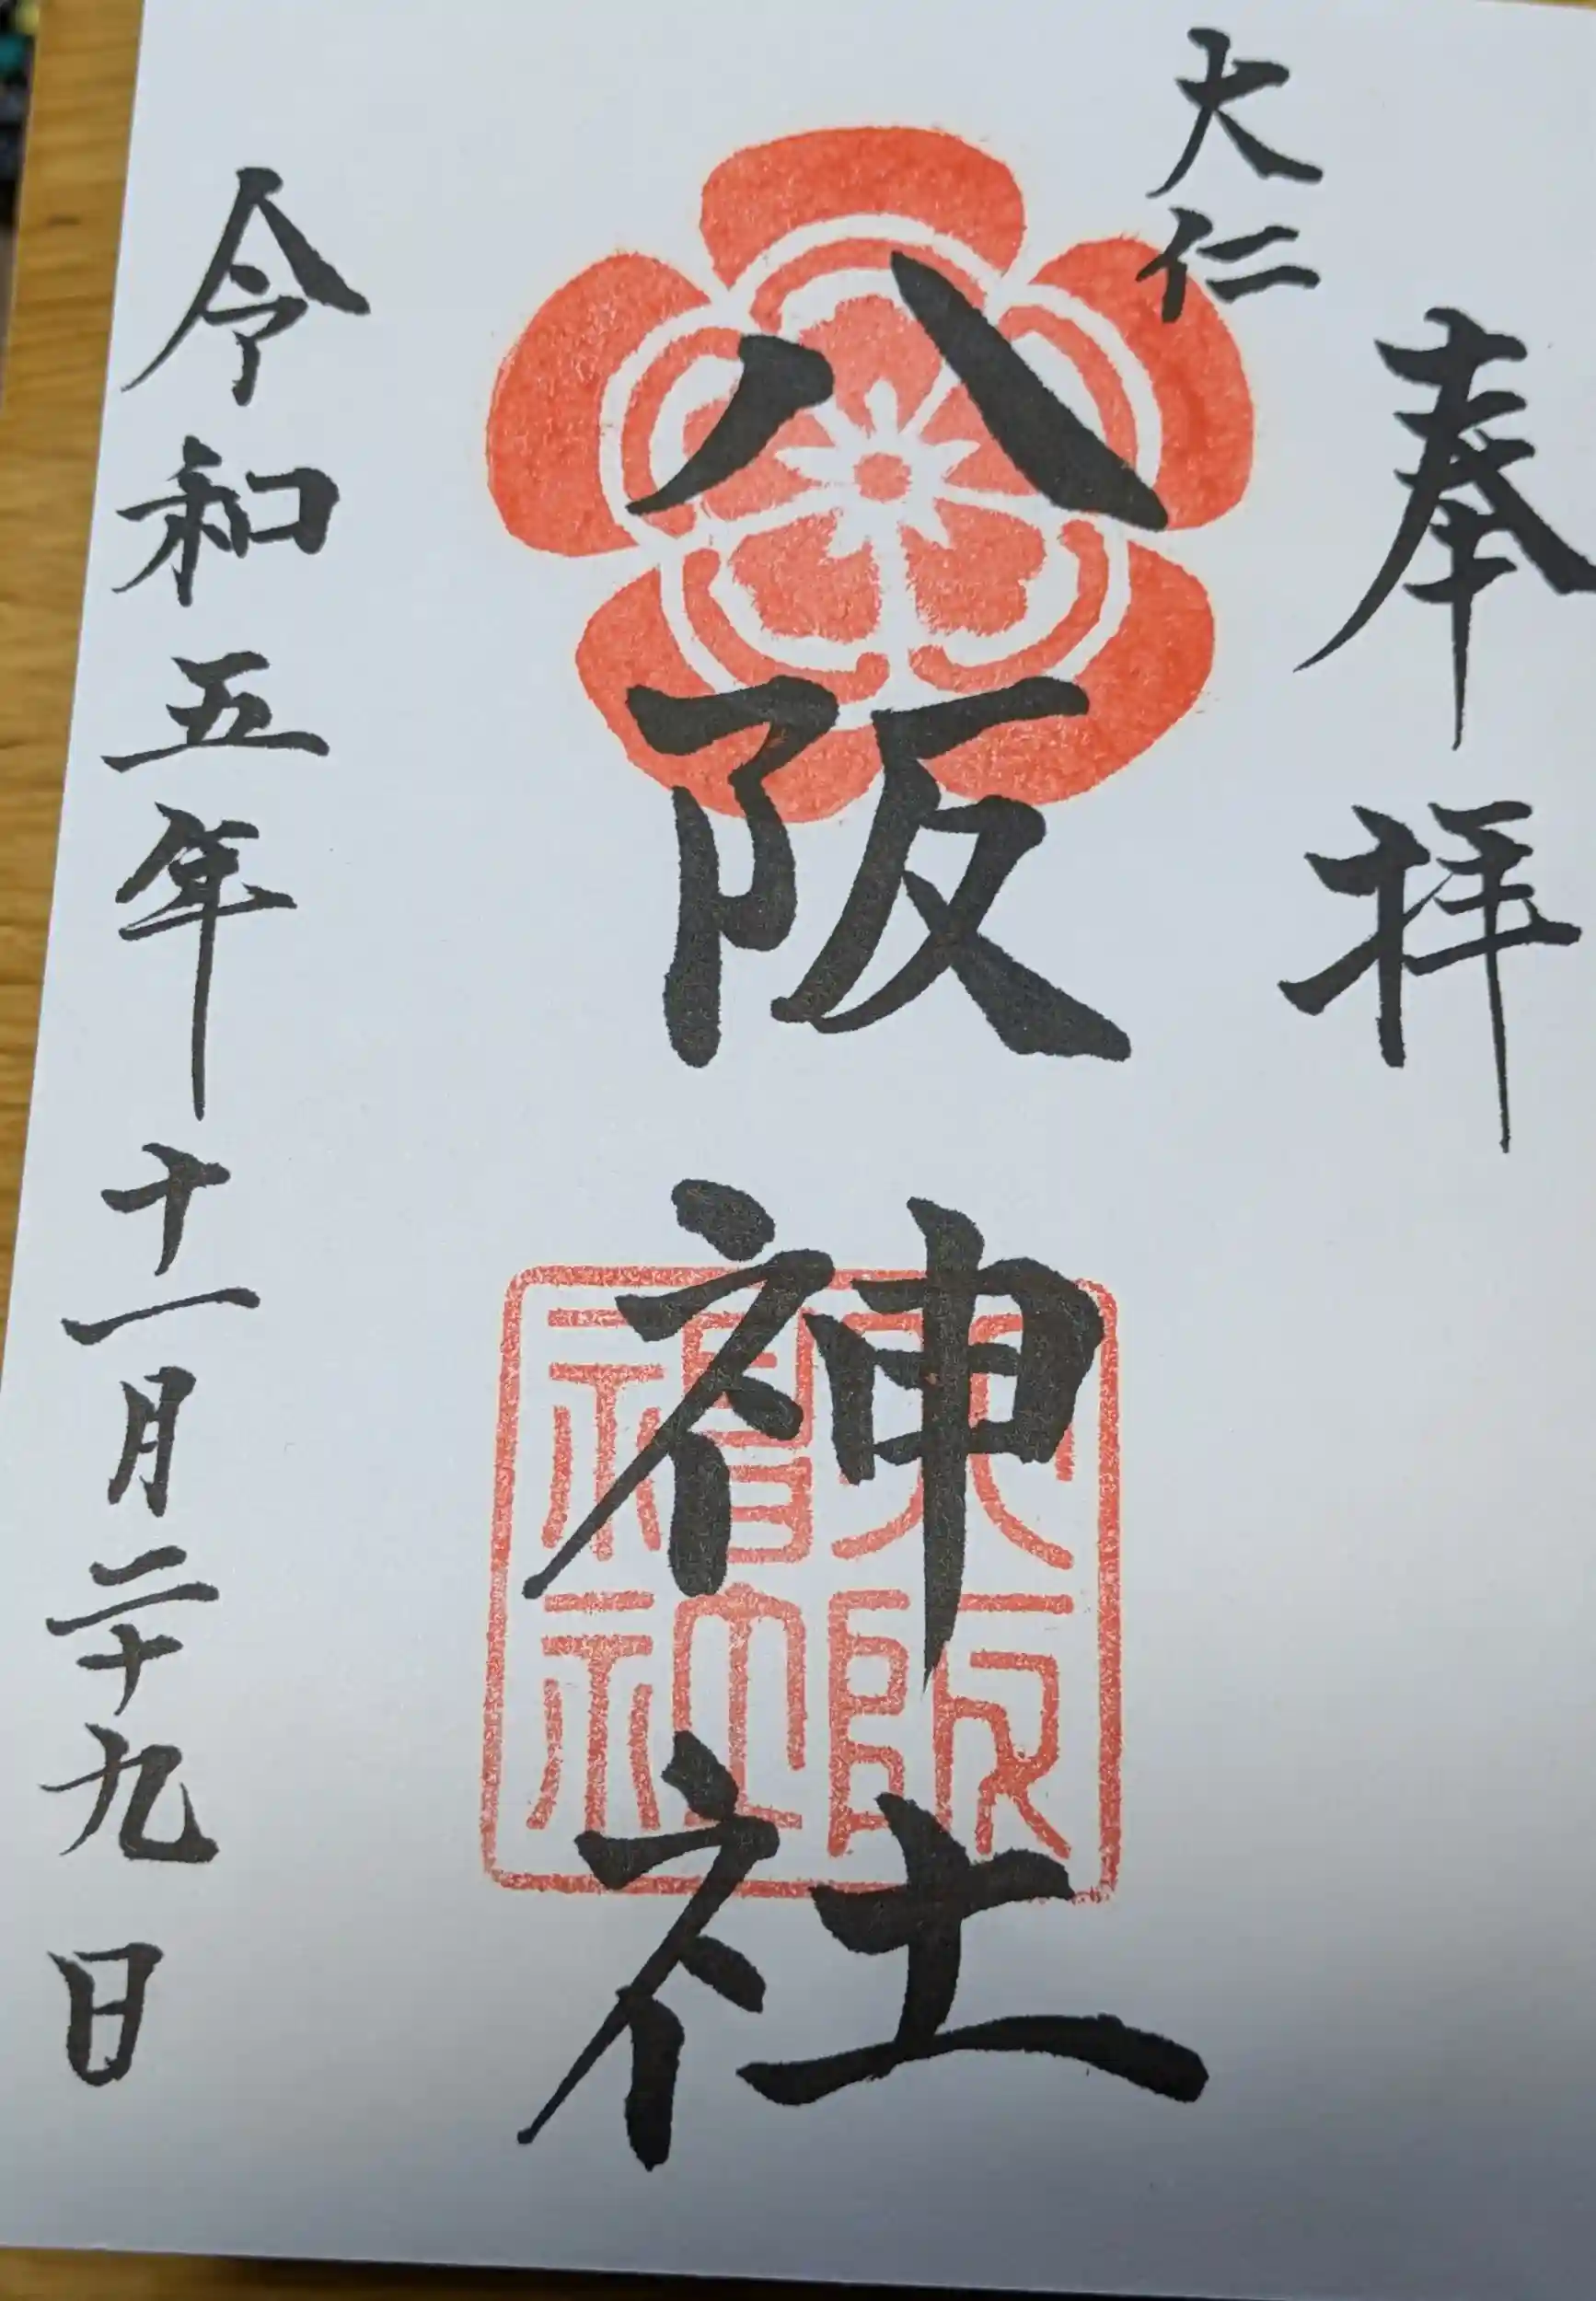 奉拝
大仁
八阪神社
令和五年十一月二十九日